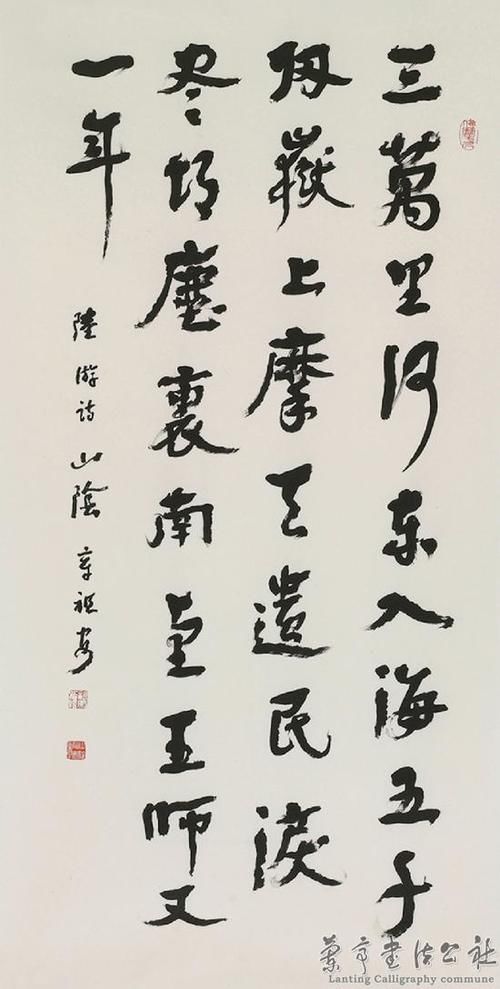 三萬里河東入海五千
仞嶽上摩天遺民淚
盡胡塵裏南望王師又
一年
陸游诗山陰章祖安
蘭亭書法公社
Lanting Calligraphy commune